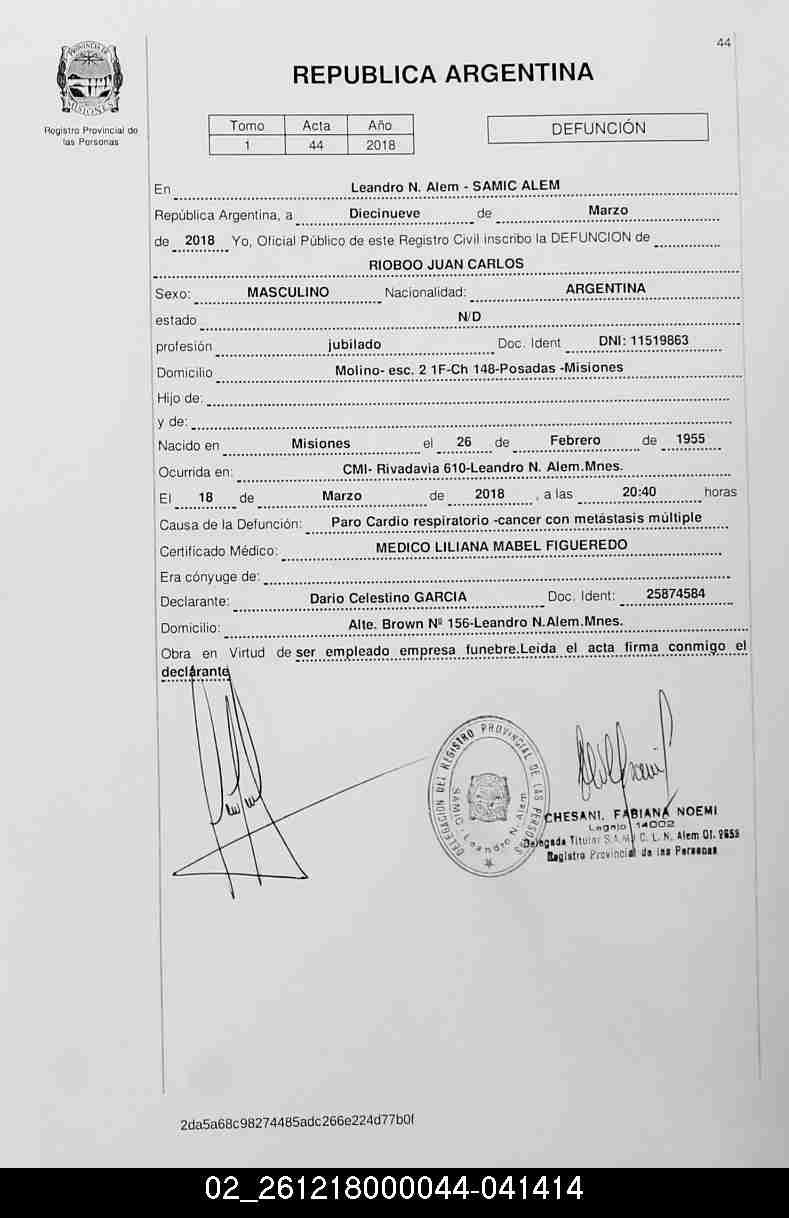 44
PROVINCIA DE
MISIONES
Registro Provincial de
las Personas
REPUBLICA ARGENTINA
Tomo Acta Año
1 44 2018
DEFUNCIÓN
En Leandro N. Alem - SAMIC ALEM
República Argentina, a Diecinueve de Marzo
de 2018 Yo, Oficial Público de este Registro Civil inscribo la DEFUNCION de
RIOBOO JUAN CARLOS
Sexo: MASCULINO Nacionalidad: ARGENTINA
estado N/D
profesión jubilado Doc. Ident DNI: 11519863
Domicilio Molino- esc. 2 1F-Ch 148-Posadas -Misiones
Hijo de:
y de:
Nacido en Misiones el 26 de Febrero de 1955
Ocurrida en: CMI- Rivadavia 610-Leandro N. Alem.Mnes.
El 18 de Marzo de 2018 , a las 20:40 horas
Causa de la Defunción: Paro Cardio respiratorio -cancer con metástasis múltiple
Certificado Médico: MEDICO LILIANA MABEL FIGUEREDO
Era cónyuge de:
Declarante: Dario Celestino GARCIA Doc. Ident: 25874584
Domicilio: Alte. Brown Nº 156-Leandro N.Alem.Mnes.
Obra en Virtud de ser empleado empresa funebre.Leida el acta firma conmigo el
declarante
DELEGACION DEL REGISTRO PROVINCIAL DE LAS PERSONAS
SAMIC - Leandro N. Alem
CHESANI, FABIANA NOEMI
Legajo 14002
Delegada Titular S.A.M.I.C. L. N. Alem Of. 2659
Registro Provincial de las Personas
2da5a68c98274485adc266e224d77b0f
02_261218000044-041414